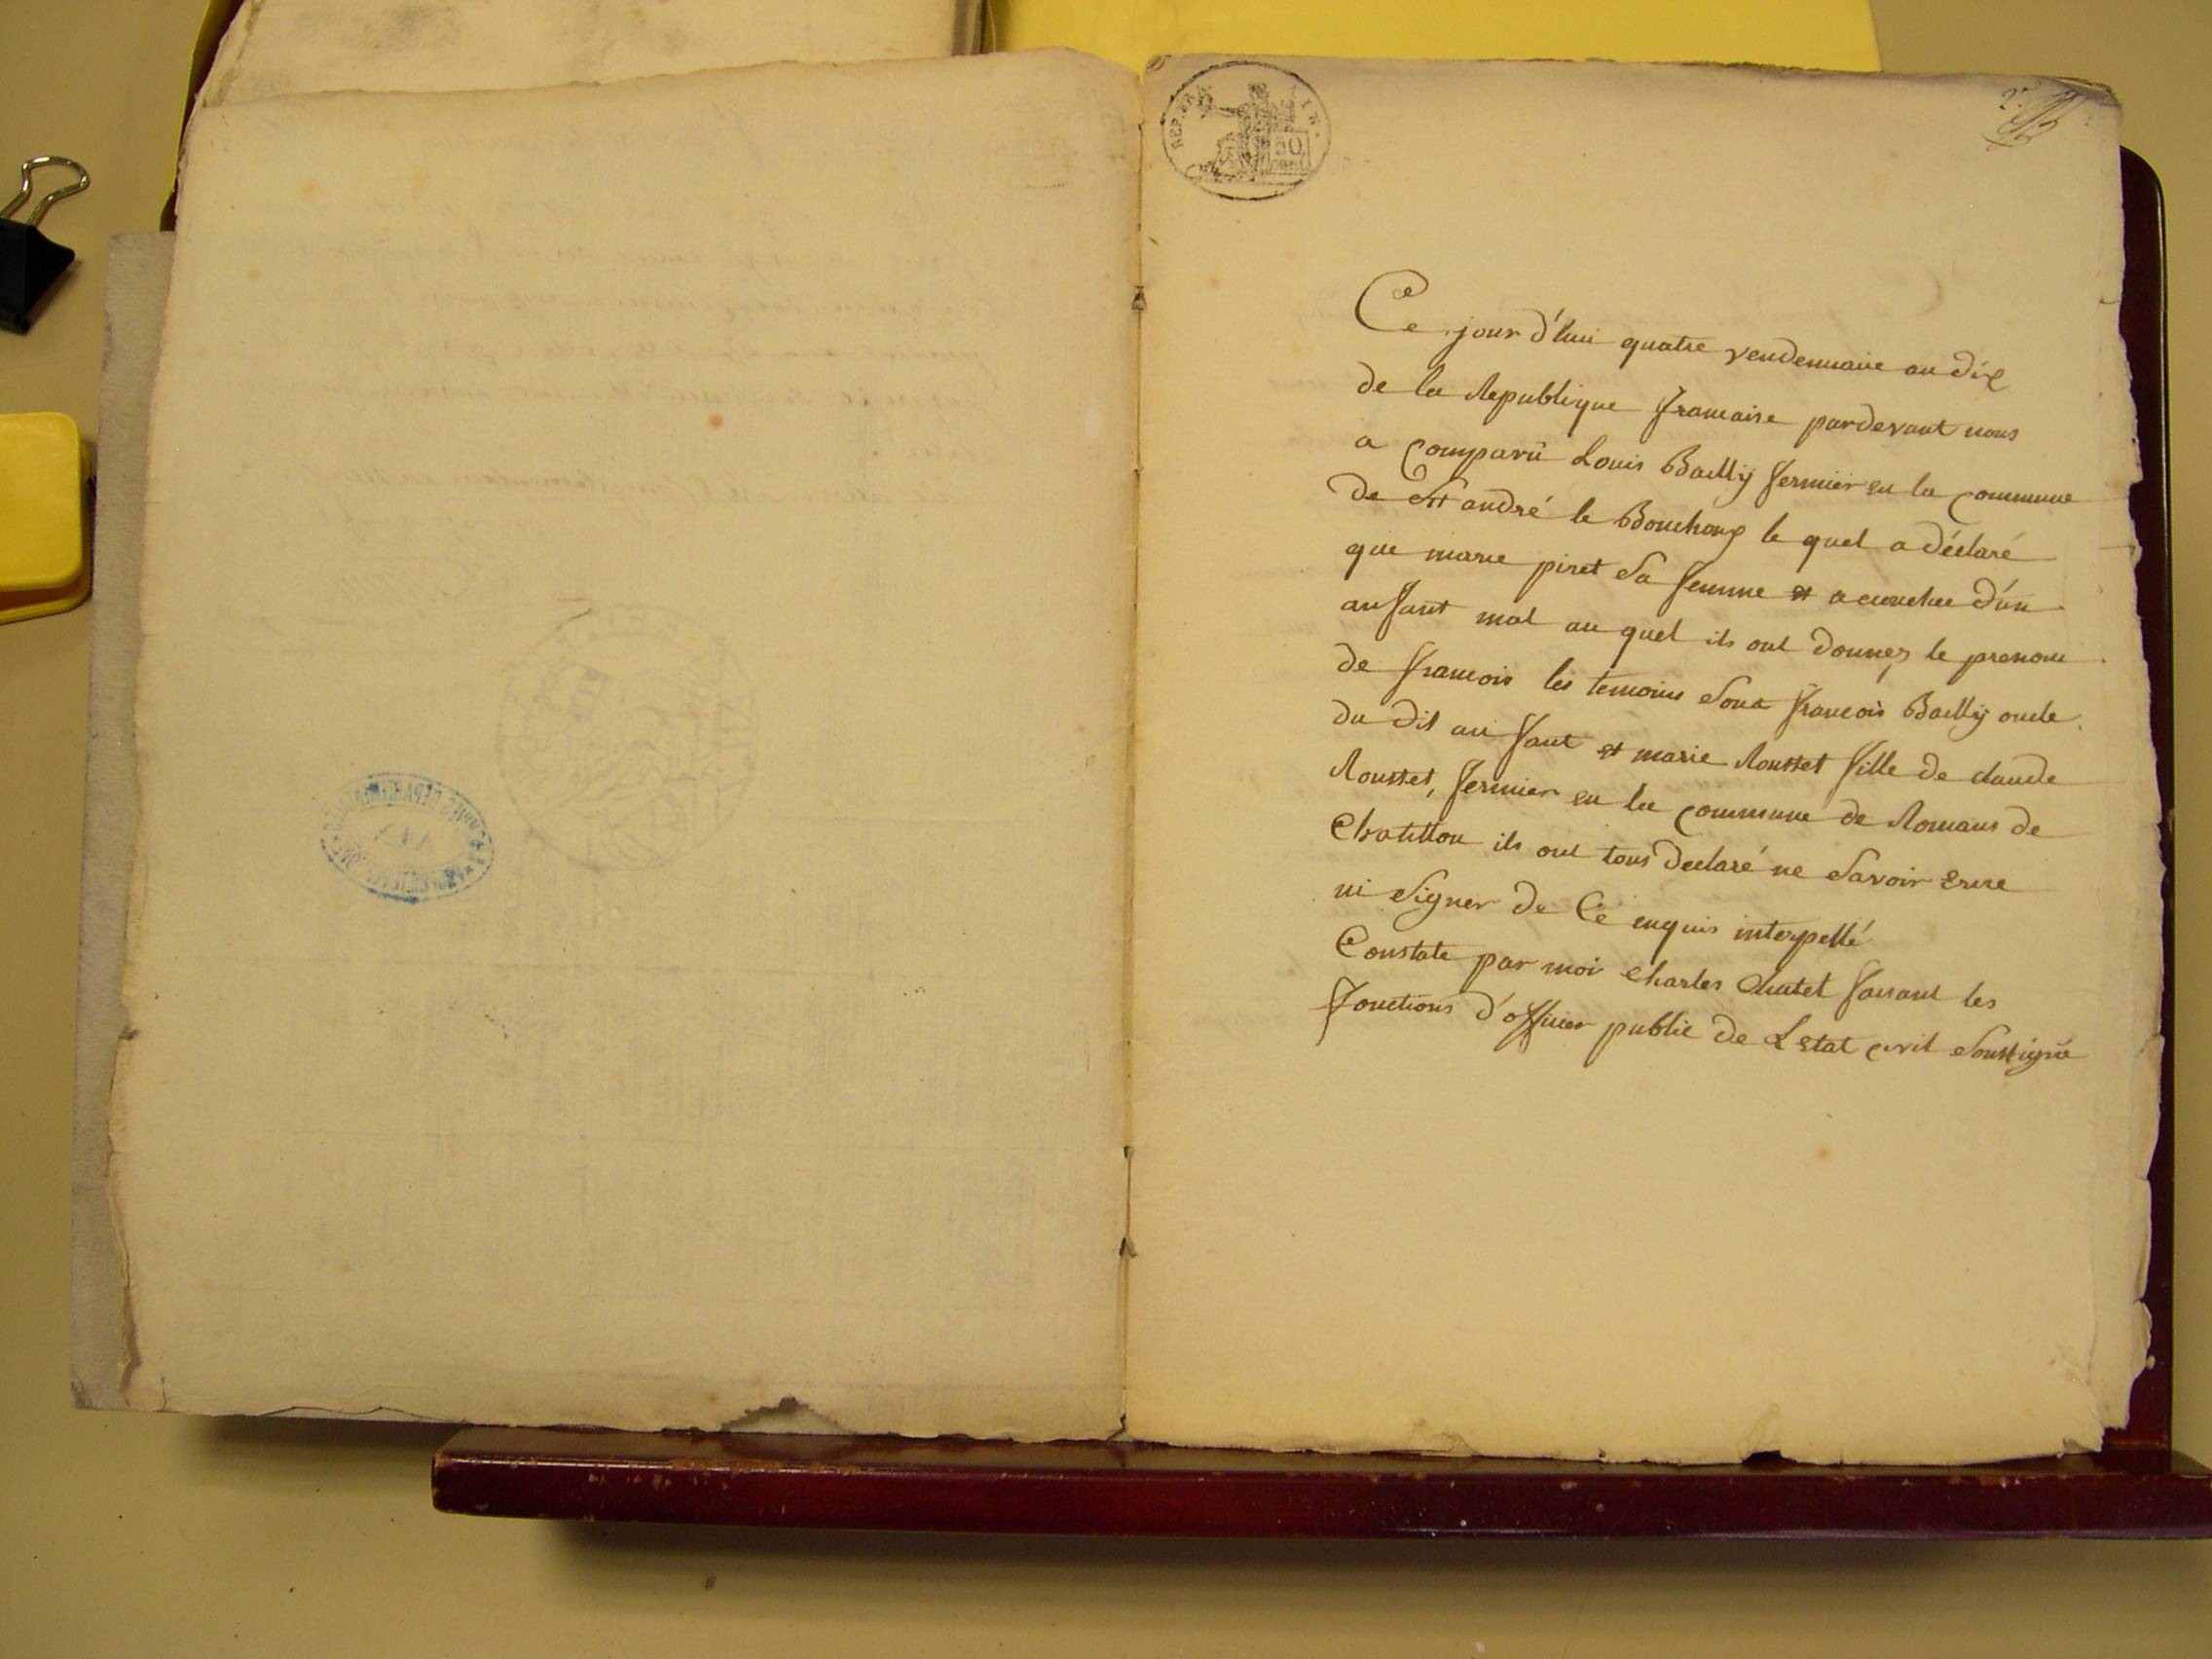 REP. FRA
50
cent
2e
Ce jour d'hui quatre vendemiaie an dix
de la Republique francaise pardevant nous
a comparu Louis Bailly fermier en la commune
de St andré le Bouchoux le quel a déclaré
que marie piret sa femme et acouchee d'un
anfant mal au quel ils ont donnez le prenom
de francois les temoins sont francois Bailly oncle
du dit anfant et marie Rousset fille de claude
Rousset, fermier en la commune de Romans de
Chatillon ils ont tous declaré ne savoir Ecrire
ni signer de Ce enquis interpellé
Constate par moi Charles Chatel faisant les
fonctions d'officier public de Letat civil soussigné